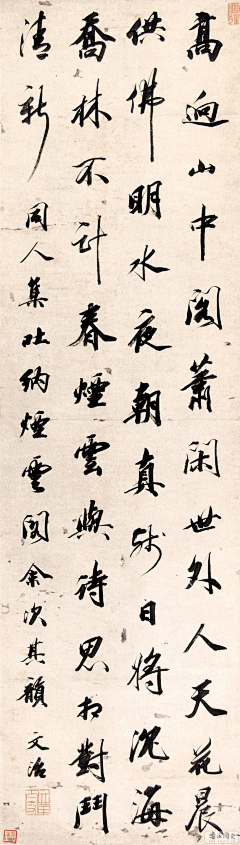 高迥山中閣蕭閑世外人天花晨
供佛明水夜朝真殘日將沈海
喬林不計春煙雲與詩思相對鬥
清新 同人集吐納煙雲閣余次其韻 文治